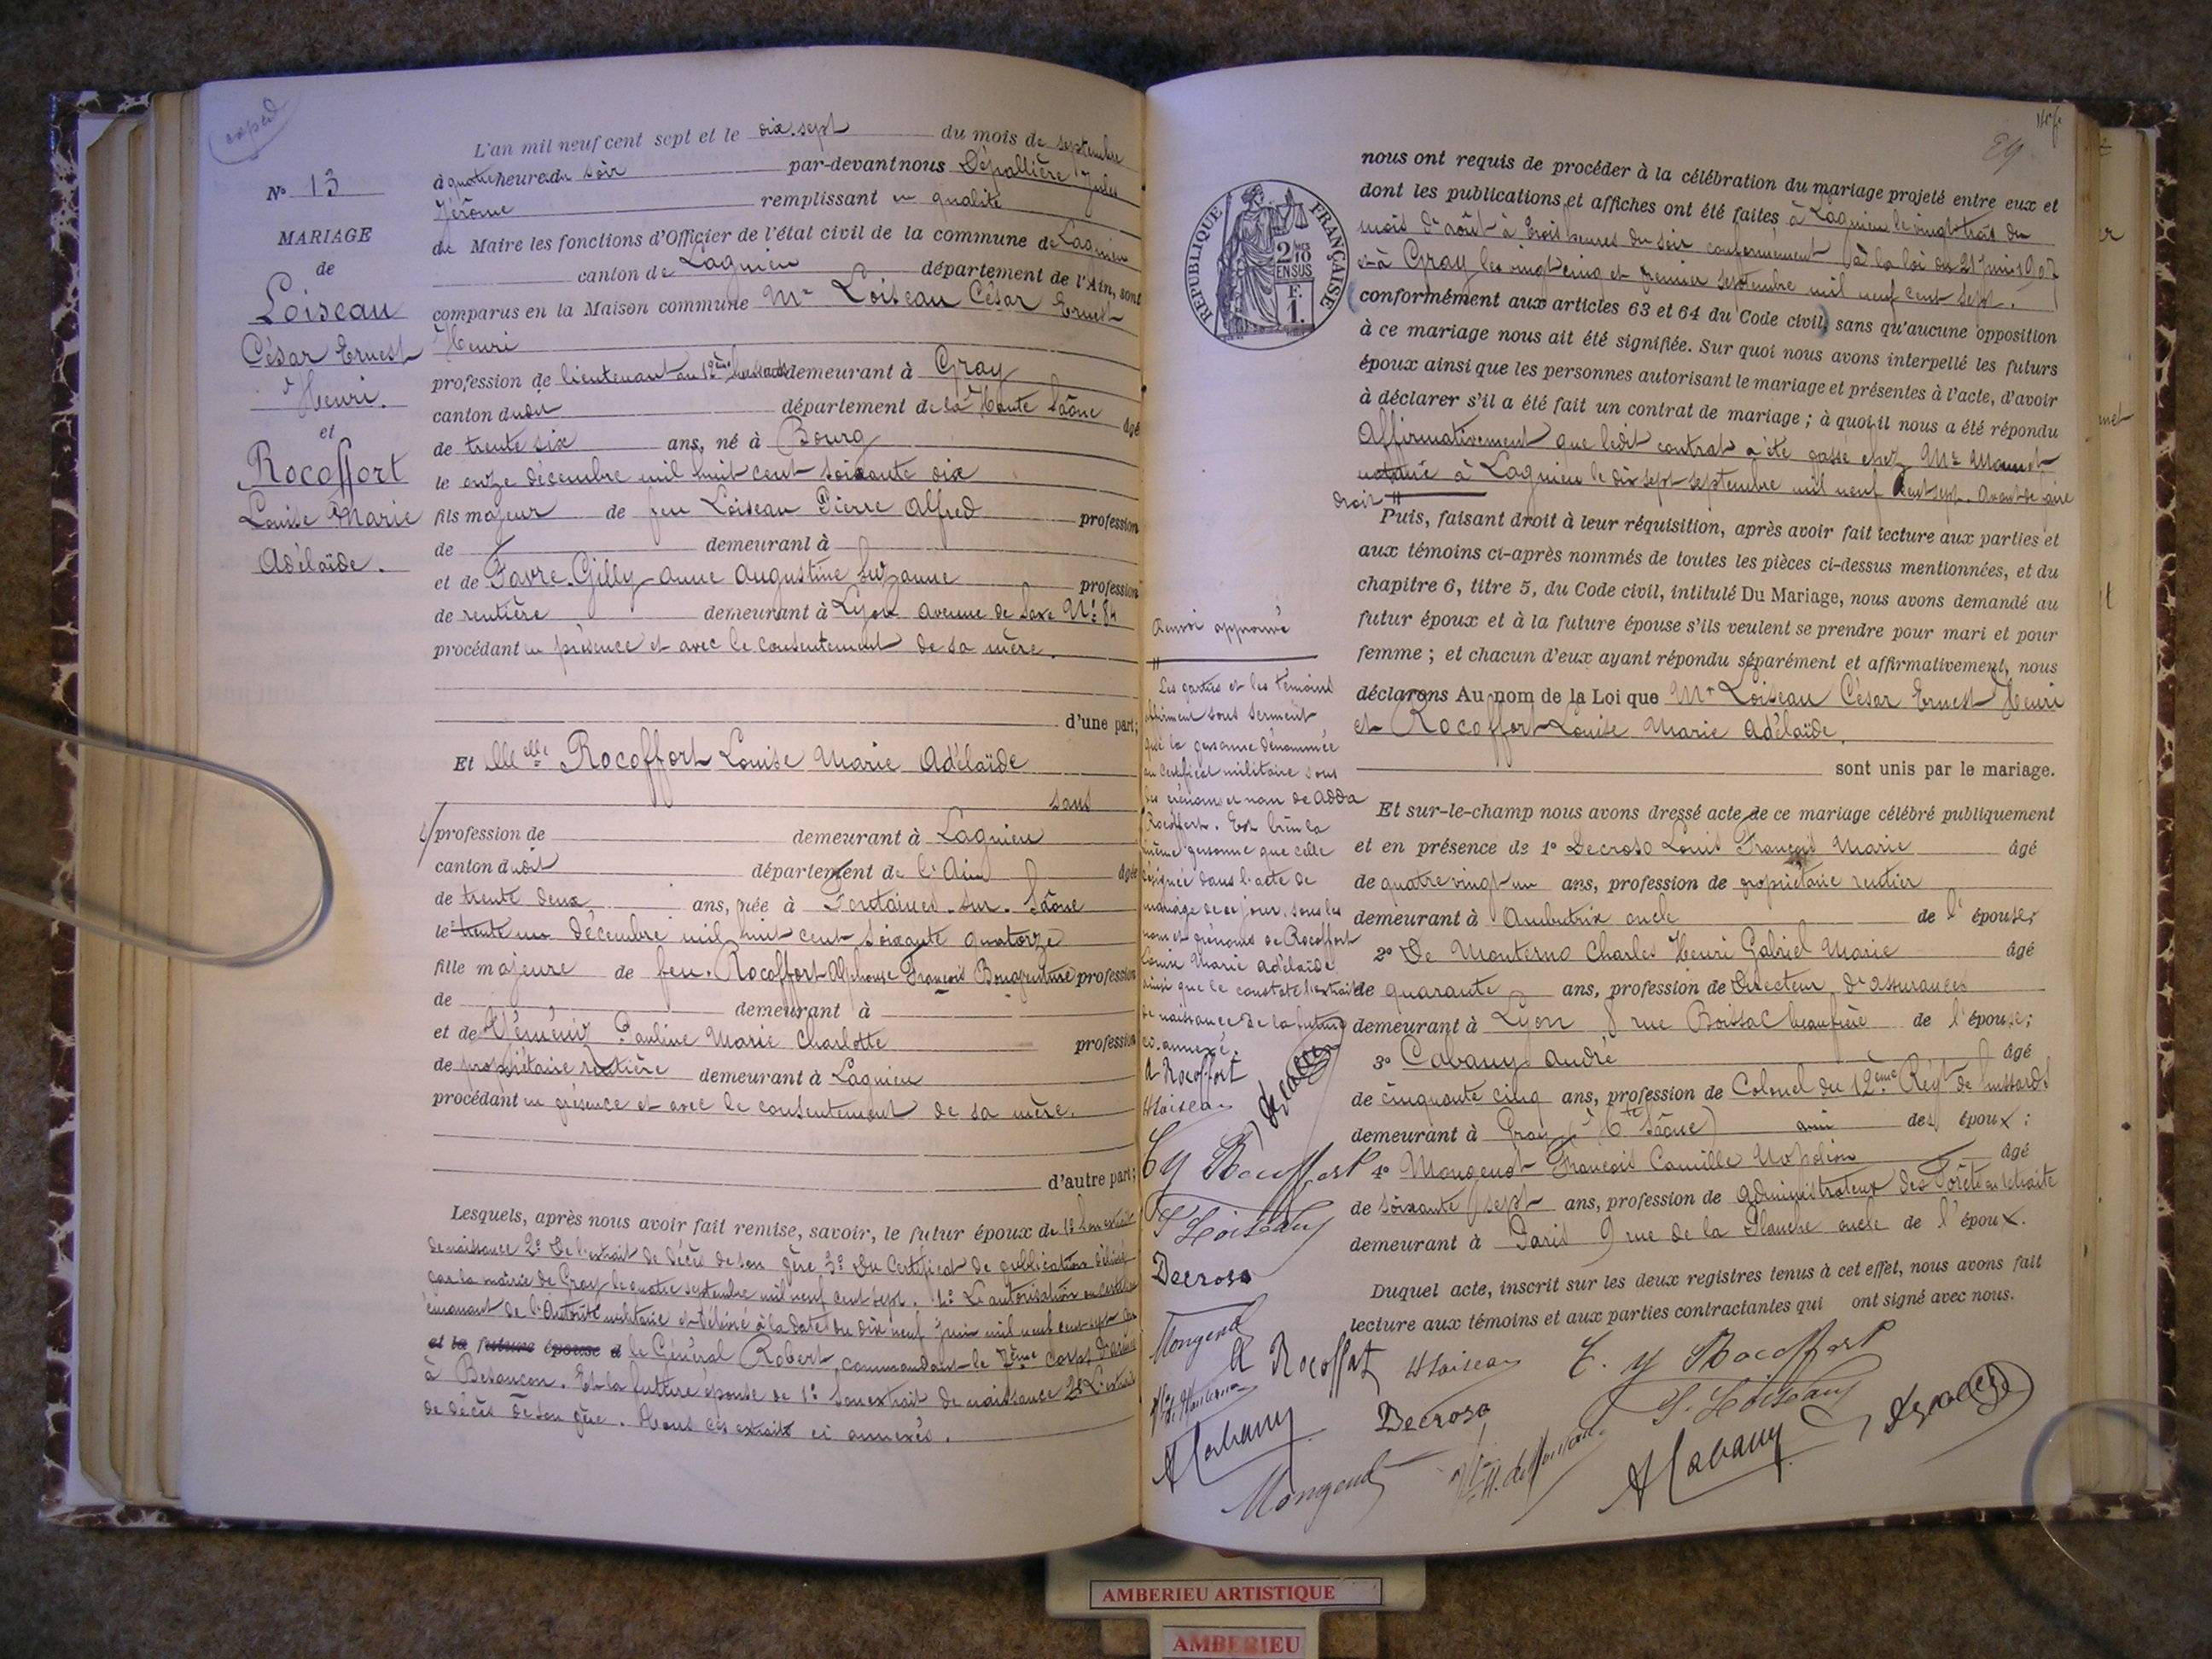 expéd
N° 13
MARIAGE
de
Loiseau
César Ernest
Henri.
et
Rocoffort
Louise Marie
Adélaïde.
L'an mil neuf cent sept et le dix sept du mois de septembre
à quatre heures du soir par-devant nous Dépallière Jules
Jérôme remplissant en qualité
de Maire les fonctions d'Officier de l'état civil de la commune de Lagnieu
canton de Lagnieu département de l'Ain, sont
comparus en la Maison commune Mr Loiseau César Ernest
Henri
profession de lieutenant au 12ème hussards demeurant à Gray
canton dudit département de la Haute Saône âgé
de trente six ans, né à Bourg
le onze décembre mil huit cent soixante dix
fils majeur de feu Loiseau Pierre Alfred profession
de demeurant à
et de Favre-Gilly Anne Augustine Suzanne profession
de rentière demeurant à Lyon avenue de Saxe N° 84
procédant en présence et avec le consentement de sa mère.
d'une part;
Et Melle Rocoffort Louise Marie Adélaïde
sans
profession de demeurant à Lagnieu
canton dudit département de l'Ain âgée
de trente deux ans, née à Fontaines-sur-Saône
le trente un décembre mil huit cent soixante quatorze
fille majeure de feu Rocoffort Alphonse François Bonaventure profession
de demeurant à
et de Pauline Marie Charlotte profession
de propriétaire rentière demeurant à Lagnieu
procédant en présence et avec le consentement de sa mère.
d'autre part;
Lesquels, après nous avoir fait remise, savoir, le futur époux de 1° Son extrait
de naissance 2° De l'extrait de décès de son père 3° Du Certificat de publication délivré
par la mairie de Gray le quatre septembre mil neuf cent sept. 4° L'autorisation
émanant de l'Autorité militaire et délivré à la date du dix neuf Juin mil neuf cent sept
et la future épouse d le Général Robert, commandant le 7ème corps d'armée
à Besançon. Et la future épouse de 1° Son extrait de naissance 2° L'extrait
de décès de son père. Tous ces extraits ci annexés.
89
nous ont requis de procéder à la célébration du mariage projeté entre eux et
dont les publications et affiches ont été faites à Lagnieu le vingt trois du
mois d'août à trois heures du soir conformément à la loi du 21 juin 1907
et à Gray les vingt cinq et premier septembre mil neuf cent sept.
conformément aux articles 63 et 64 du Code civil, sans qu'aucune opposition
à ce mariage nous ait été signifiée. Sur quoi nous avons interpellé les futurs
époux ainsi que les personnes autorisant le mariage et présentes à l'acte, d'avoir
à déclarer s'il a été fait un contrat de mariage ; à quoi il nous a été répondu
Affirmativement que ledit contrat a été passé chez Me
notaire à Lagnieu le dix sept septembre mil neuf cent sept. Avant de faire
droit
Puis, faisant droit à leur réquisition, après avoir fait lecture aux parties et
aux témoins ci-après nommés de toutes les pièces ci-dessus mentionnées, et du
chapitre 6, titre 5, du Code civil, intitulé Du Mariage, nous avons demandé au
futur époux et à la future épouse s'ils veulent se prendre pour mari et pour
femme ; et chacun d'eux ayant répondu séparément et affirmativement, nous
déclarons Au nom de la Loi que Mr Loiseau César Ernest Henri
et Rocoffort Louise Marie Adélaïde.
sont unis par le mariage.
Et sur-le-champ nous avons dressé acte de ce mariage célébré publiquement
et en présence de 1° Decroso Louis François Marie âgé
de quatre vingt un ans, profession de propriétaire rentier
demeurant à Ambutrix oncle de l'épouse;
2° De Monterno Charles Henri Gabriel Marie âgé
de quarante ans, profession de Directeur d'assurances
demeurant à Lyon 8 rue Boissac beaufrère de l'épouse;
3° Cabany André âgé
de cinquante cinq ans, profession de Colonel du 12ème Régt de hussards
demeurant à Gray (Hte Saône) ami des époux;
4° Mongenot François Camille Napoléon âgé
de soixante sept ans, profession de administrateur des Forêts en retraite
demeurant à Paris 9 rue de la Planche oncle de l'époux.
Duquel acte, inscrit sur les deux registres tenus à cet effet, nous avons fait
lecture aux témoins et aux parties contractantes qui ont signé avec nous.
RÉPUBLIQUE FRANÇAISE
2 10
EN SUS
F.
1.
Renvoi approuvé
Les parties et les témoins
affirment sous serment
que la personne dénommée
au certificat militaire sous
les prénoms et nom de Adda
Rocoffort. Est bien la
même personne que celle
désignée dans l'acte de
mariage de ce jour, sous les
nom et prénoms de Rocoffort
Louise Marie Adélaïde
ainsi que le constate l'extrait
de naissance de la future
ci annexé.
A Rocoffort
H Loiseau
C Y Rocoffort
S Loiseau
Decroso
Mongenot
A Cabany
A Rocoffort H Loiseau C. Y Rocoffort
Decroso S. Loiseau
Mongenot A Cabany
AMBERIEU ARTISTIQUE
AMBERIEU